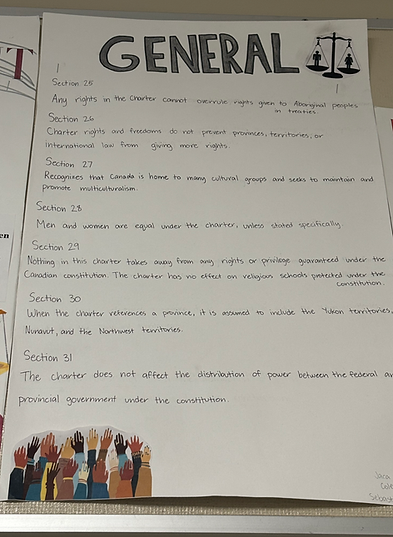 GENERAL
Section 25
Any rights in the Charter cannot overrule rights given to Aboriginal peoples
in treaties
Section 26
Charter rights and freedoms do not prevent provinces, territories, or
International law from giving more rights.
Section 27
Recognizes that Canada is home to many cultural groups and seeks to maintain and
promote multiculturalism.
Section 28
Men and women are equal under the charter, unless stated specifically.
Section 29
Nothing in this charter takes away from any rights or privilege guaranteed under the
Canadian constitution. The charter has no effect on religious schools protected under the
constitution.
Section 30
When the charter references a province, it is assumed to include the Yukon territories,
Nunavut, and the Northwest territories.
Section 31
The charter does not affect the distribution of power between the federal
provincial government under the constitution.